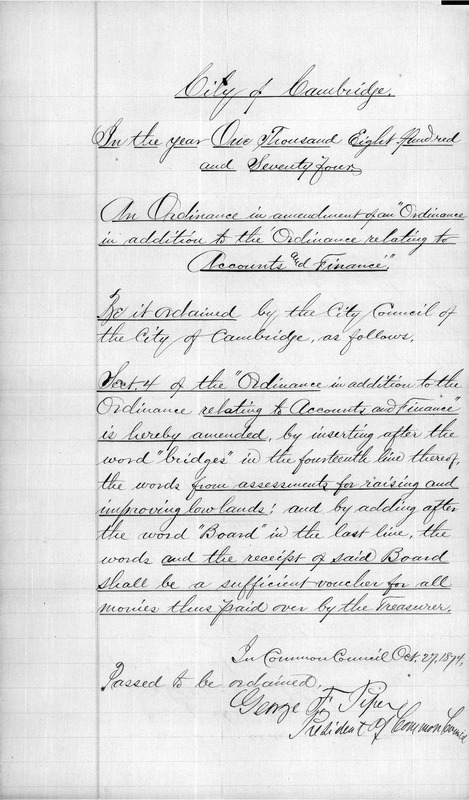 City of Cambridge.
In the year One Thousand Eight Hundred
and Seventy four
An Ordinance in amendment of an "Ordinance
in addition to the Ordinance relating to
Accounts and Finance".
Be it ordained by the City Council of
the City of Cambridge, as follows,
Sect. 4 of the "Ordinance in addition to the
Ordinance relating to Accounts and Finance"
is hereby amended, by inserting after the
word "bridges" in the fourteenth line thereof,
the words from assessments for raising and
improving low lands; and by adding after
the word "Board" in the last line, the
words and the receipt of said Board
shall be a sufficient voucher for all
monies thus paid over by the Treasurer.
In Common Council Oct. 27, 1874.
Passed to be ordained,
George F. Piper
President of Common Council